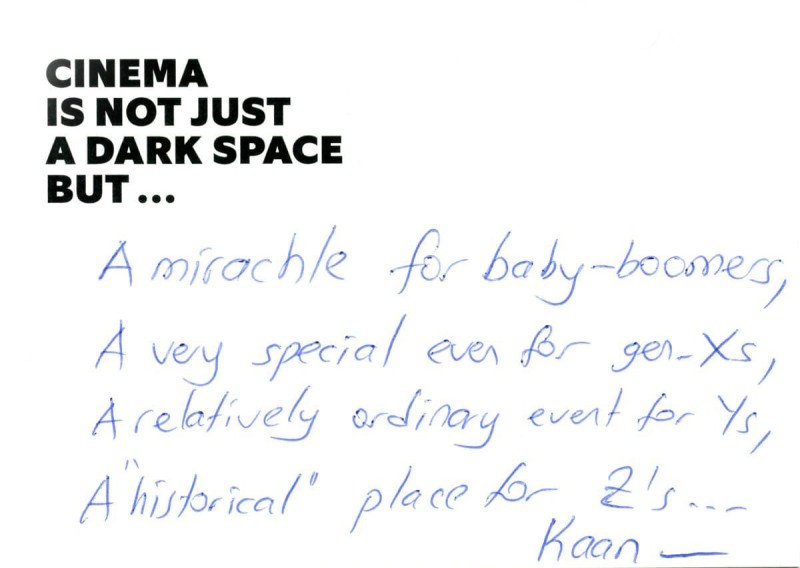 CINEMA
IS NOT JUST
A DARK SPACE
BUT ...
A mirachle for baby-boomers,
A very special even for gen-Xs,
A relatively ordinary event for Ys,
A "historical" place for Z's...
Kaan —